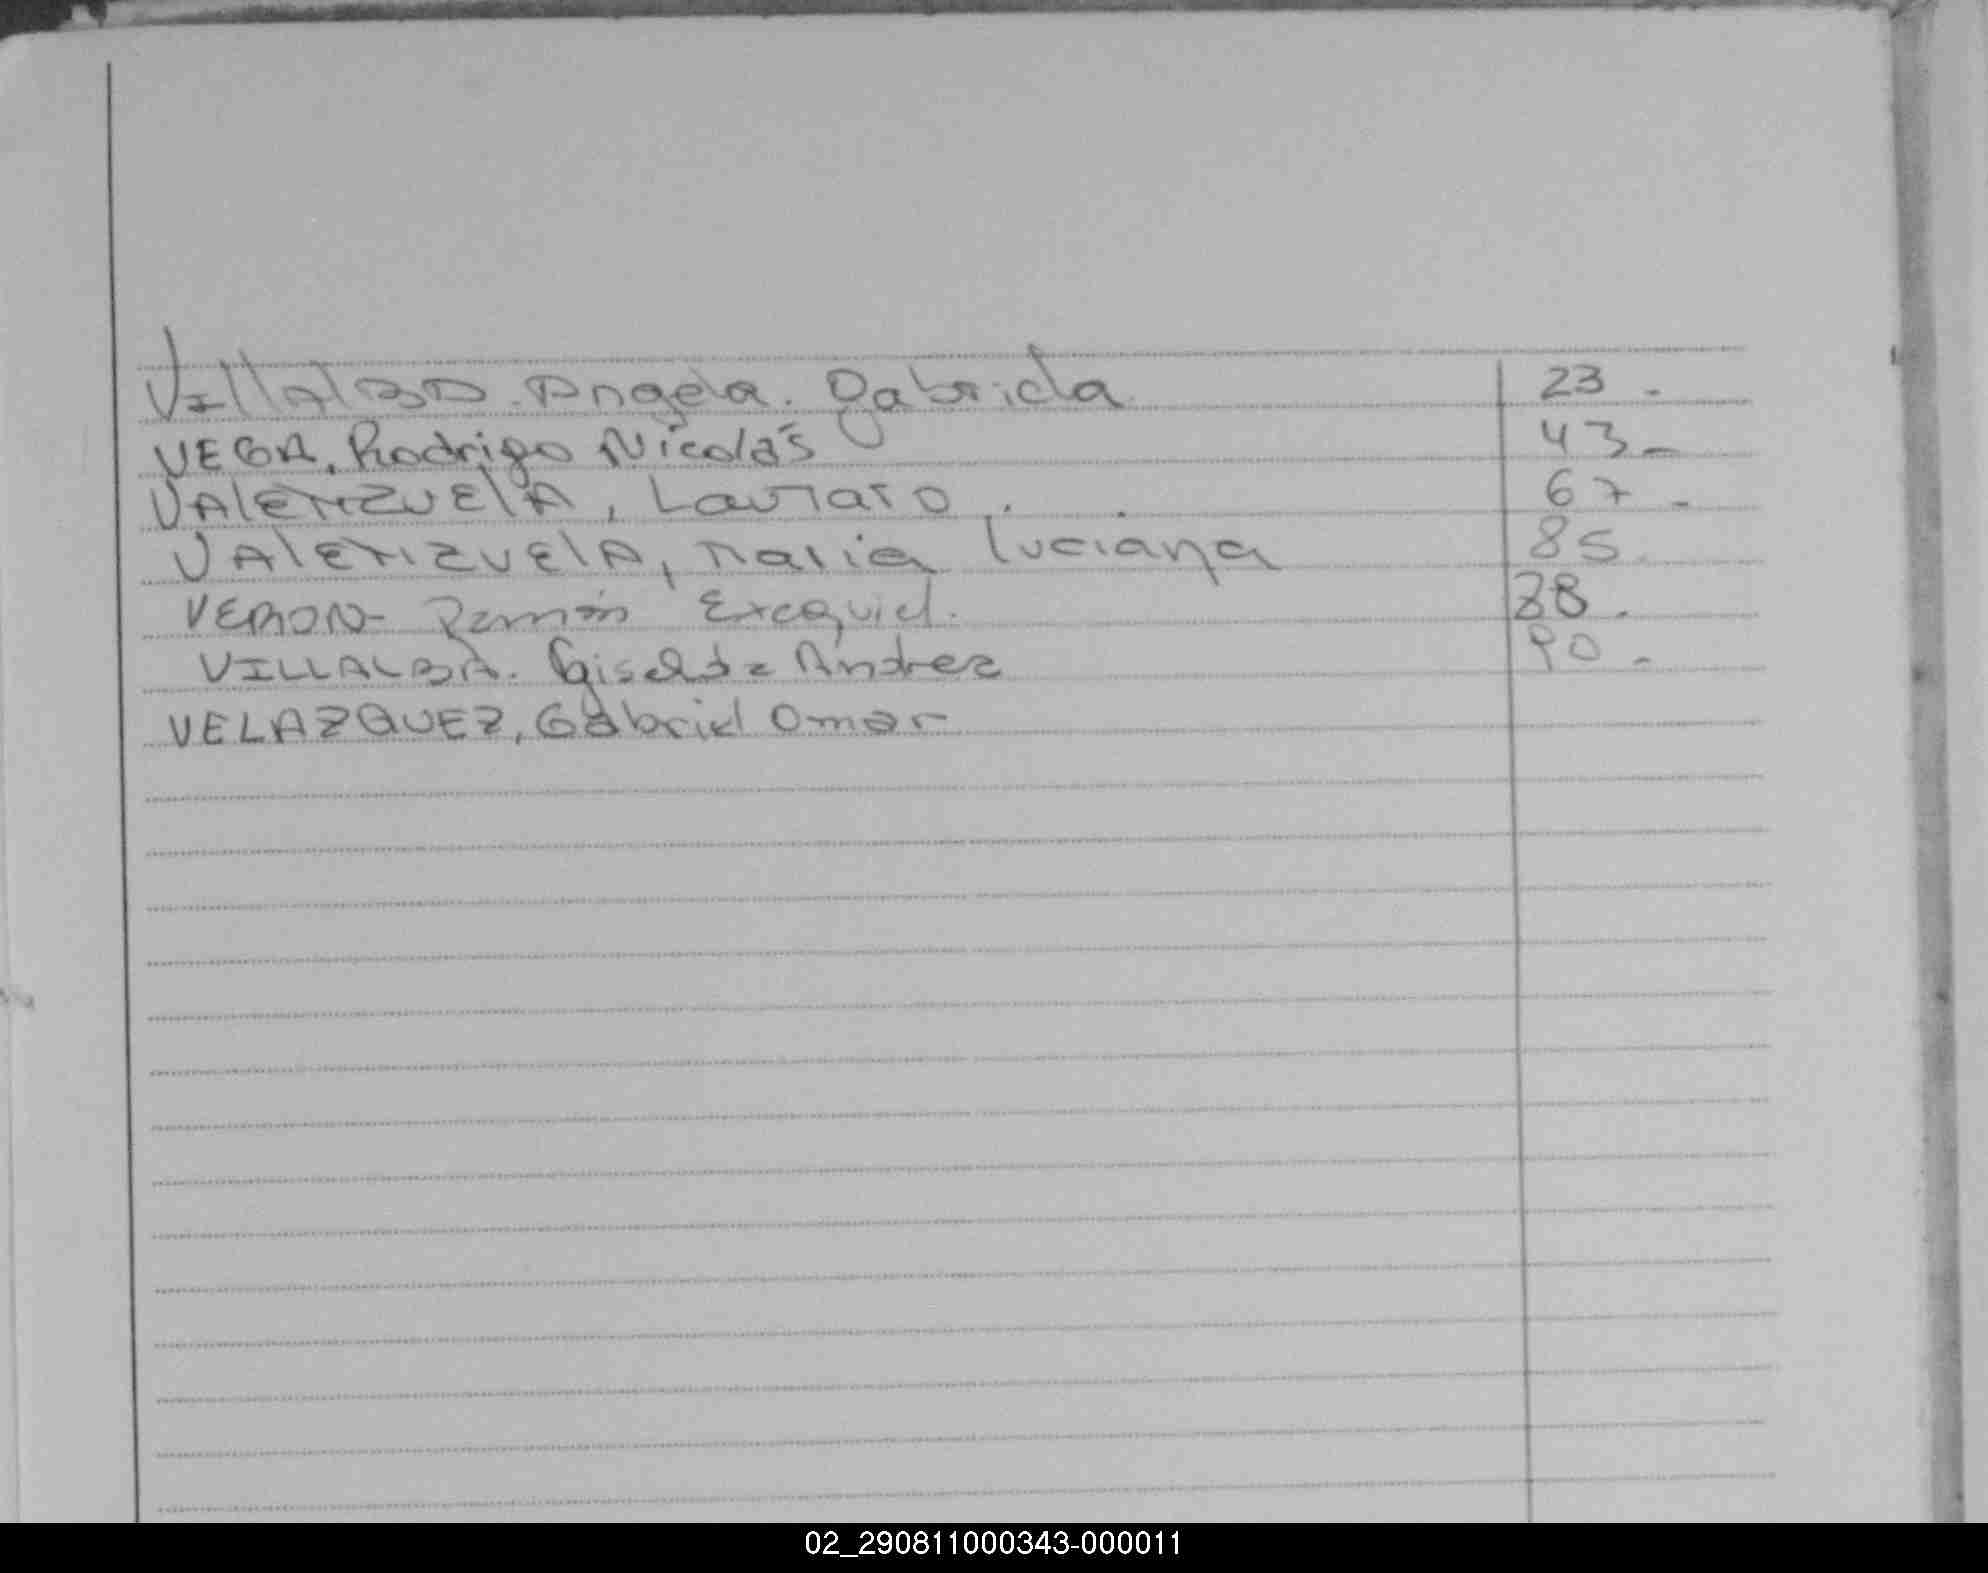 Villalba. Angela. Gabriela 23.
VEGA, Rodrigo Nicolás 43_
VAlENZUElA, Lautaro. 67_
VAlENZUElA, Maria Luciana 85
VERON- Ramón Exequiel. 88.
VILLALBA. Giselda Andrea 90_
VELAZQUEZ, Gabriel Omar
02_290811000343-000011